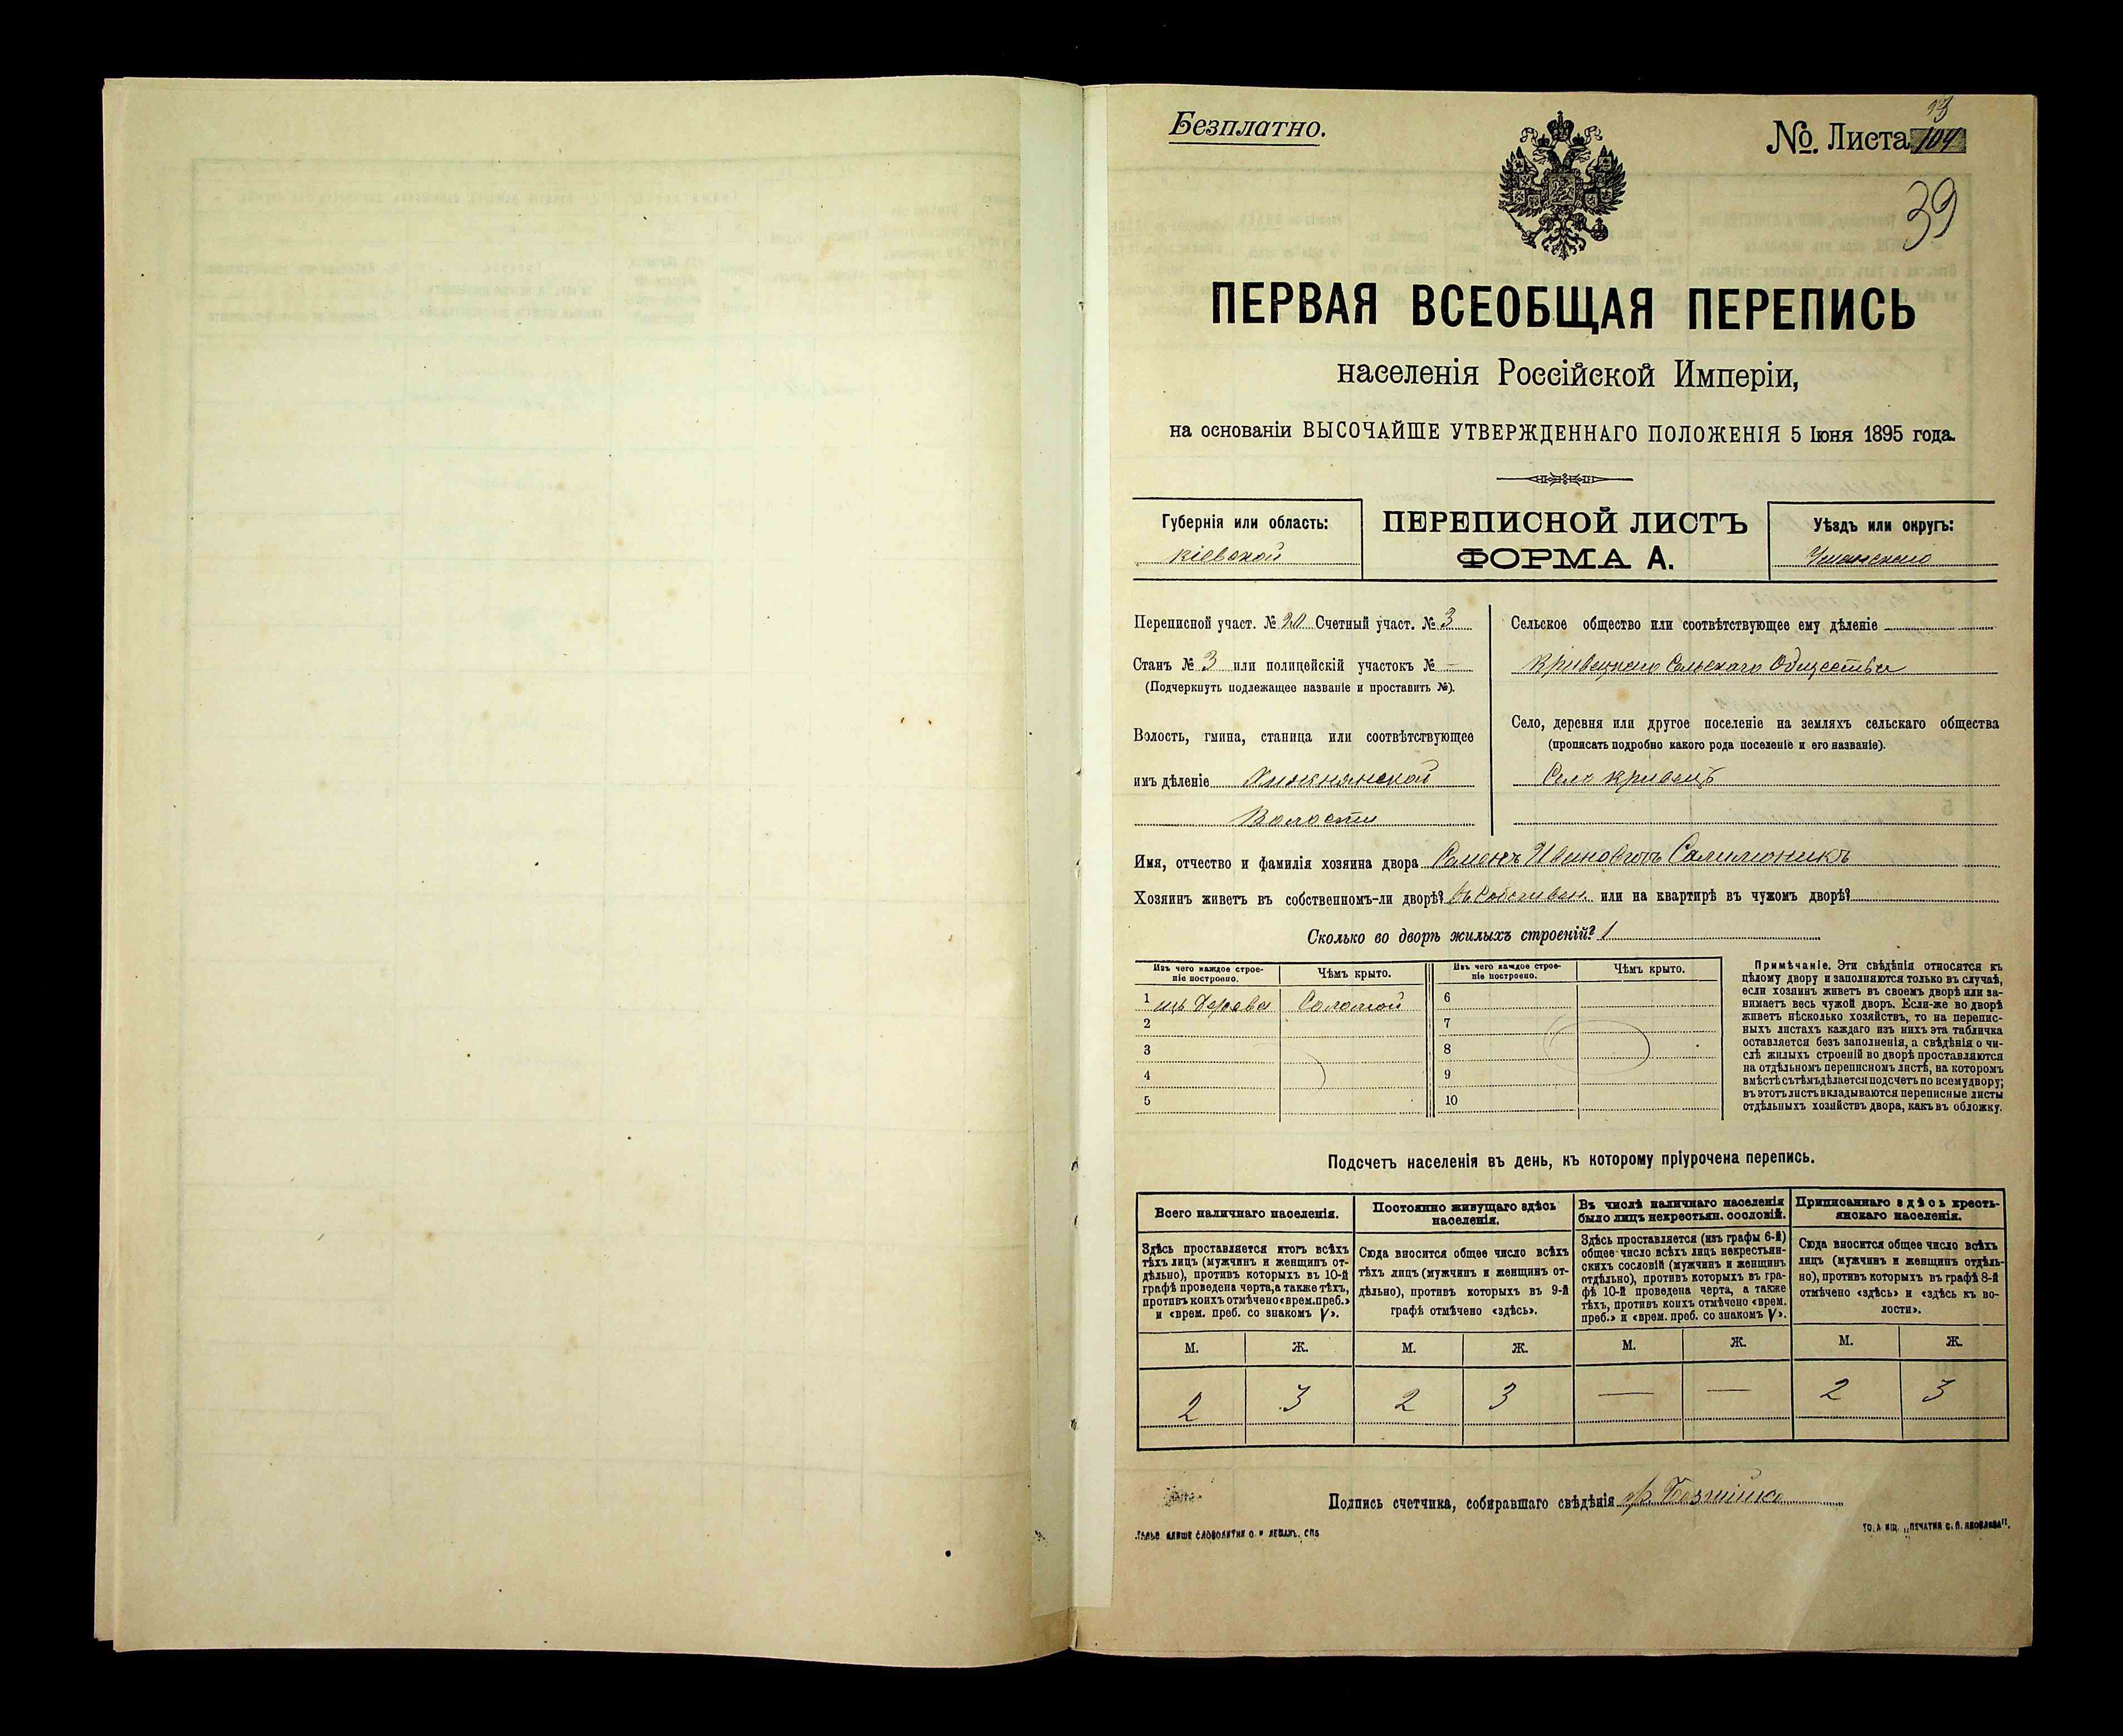 Безплатно.
№. Листа 104
39
ПЕРВАЯ ВСЕОБЩАЯ ПЕРЕПИСЬ
населенія Россійской Имперіи,
на основаніи ВЫСОЧАЙШЕ УТВЕРЖДЕННАГО ПОЛОЖЕНІЯ 5 Іюня 1895 года.
Губернія или область:
Кіевской
ПЕРЕПИСНОЙ ЛИСТЪ
ФОРМА А.
Уѣздъ или округъ:
Уманскаго
Переписной участ. № 20 Счетный участ. № 3
Станъ № 3 или полицейскій участокъ № —
(Подчеркнуть подлежащее названіе и проставить №).
Волость, гмина, станица или соотвѣтствующее
имъ дѣленіе
Волости
Сельское общество или соотвѣтствующее ему дѣленіе
Кривецкаго Сельскаго Общества
Село, деревня или другое поселеніе на земляхъ сельскаго общества
(прописать подробно какого рода поселеніе и его названіе).
Село Кривецъ
Имя, отчество и фамилія хозяина двора Семенъ Ивановичъ
Хозяинъ живетъ въ собственномъ-ли дворѣ? въ собствен. или на квартирѣ въ чужомъ дворѣ?
Сколько во дворѣ жилыхъ строеній? 1
Изъ чего каждое строе-
ніе построено.
Чѣмъ крыто.
Изъ чего каждое строе-
ніе построено.
Чѣмъ крыто.
1 изъ Дерева Соломой
2
3
4
5
6
7
8
9
10
Примѣчаніе. Эти свѣдѣнія относятся къ
цѣлому двору и заполняются только въ случаѣ,
если хозяинъ живетъ въ своемъ дворѣ или за-
нимаетъ весь чужой дворъ. Если-же во дворѣ
живетъ нѣсколько хозяйствъ, то на перепис-
ныхъ листахъ каждаго изъ нихъ эта табличка
оставляется безъ заполненія, а свѣдѣнія о чи-
слѣ жилыхъ строеній во дворѣ проставляются
на отдѣльномъ переписномъ листѣ, на которомъ
вмѣстѣ съ тѣмъ дѣлается подсчетъ по всему двору;
въ этотъ листъ вкладываются переписные листы
отдѣльныхъ хозяйствъ двора, какъ въ обложку.
Подсчетъ населенія въ день, къ которому пріурочена перепись.
Всего наличнаго населенія.
Здѣсь проставляется итогъ всѣхъ
тѣхъ лицъ (мужчинъ и женщинъ от-
дѣльно), противъ которыхъ въ 10-й
графѣ проведена черта, а также тѣхъ,
противъ коихъ отмѣчено «врем. преб.»
и «врем. преб. со знакомъ V».
Постоянно живущаго здѣсь
населенія.
Сюда вносится общее число всѣхъ
тѣхъ лицъ (мужчинъ и женщинъ от-
дѣльно), противъ которыхъ въ 9-й
графѣ отмѣчено «здѣсь».
Въ числѣ наличнаго населенія
было лицъ некрестьян. сословій.
Здѣсь проставляется (изъ графы 6-й)
общее число всѣхъ лицъ некрестьян-
скихъ сословій (мужчинъ и женщинъ
отдѣльно), противъ которыхъ въ гра-
фѣ 10-й проведена черта, а также
тѣхъ, противъ коихъ отмѣчено «врем.
преб.» и «врем. преб. со знакомъ V».
Приписаннаго здѣсь кресть-
янскаго населенія.
Сюда вносится общее число всѣхъ
лицъ (мужчинъ и женщинъ отдѣль-
но), противъ которыхъ въ графѣ 8-й
отмѣчено «здѣсь» и «здѣсь къ во-
лости».
М. Ж. М. Ж. М. Ж. М. Ж.
2 3 2 3 — — 2 3
Подпись счетчика, собиравшаго свѣдѣнія